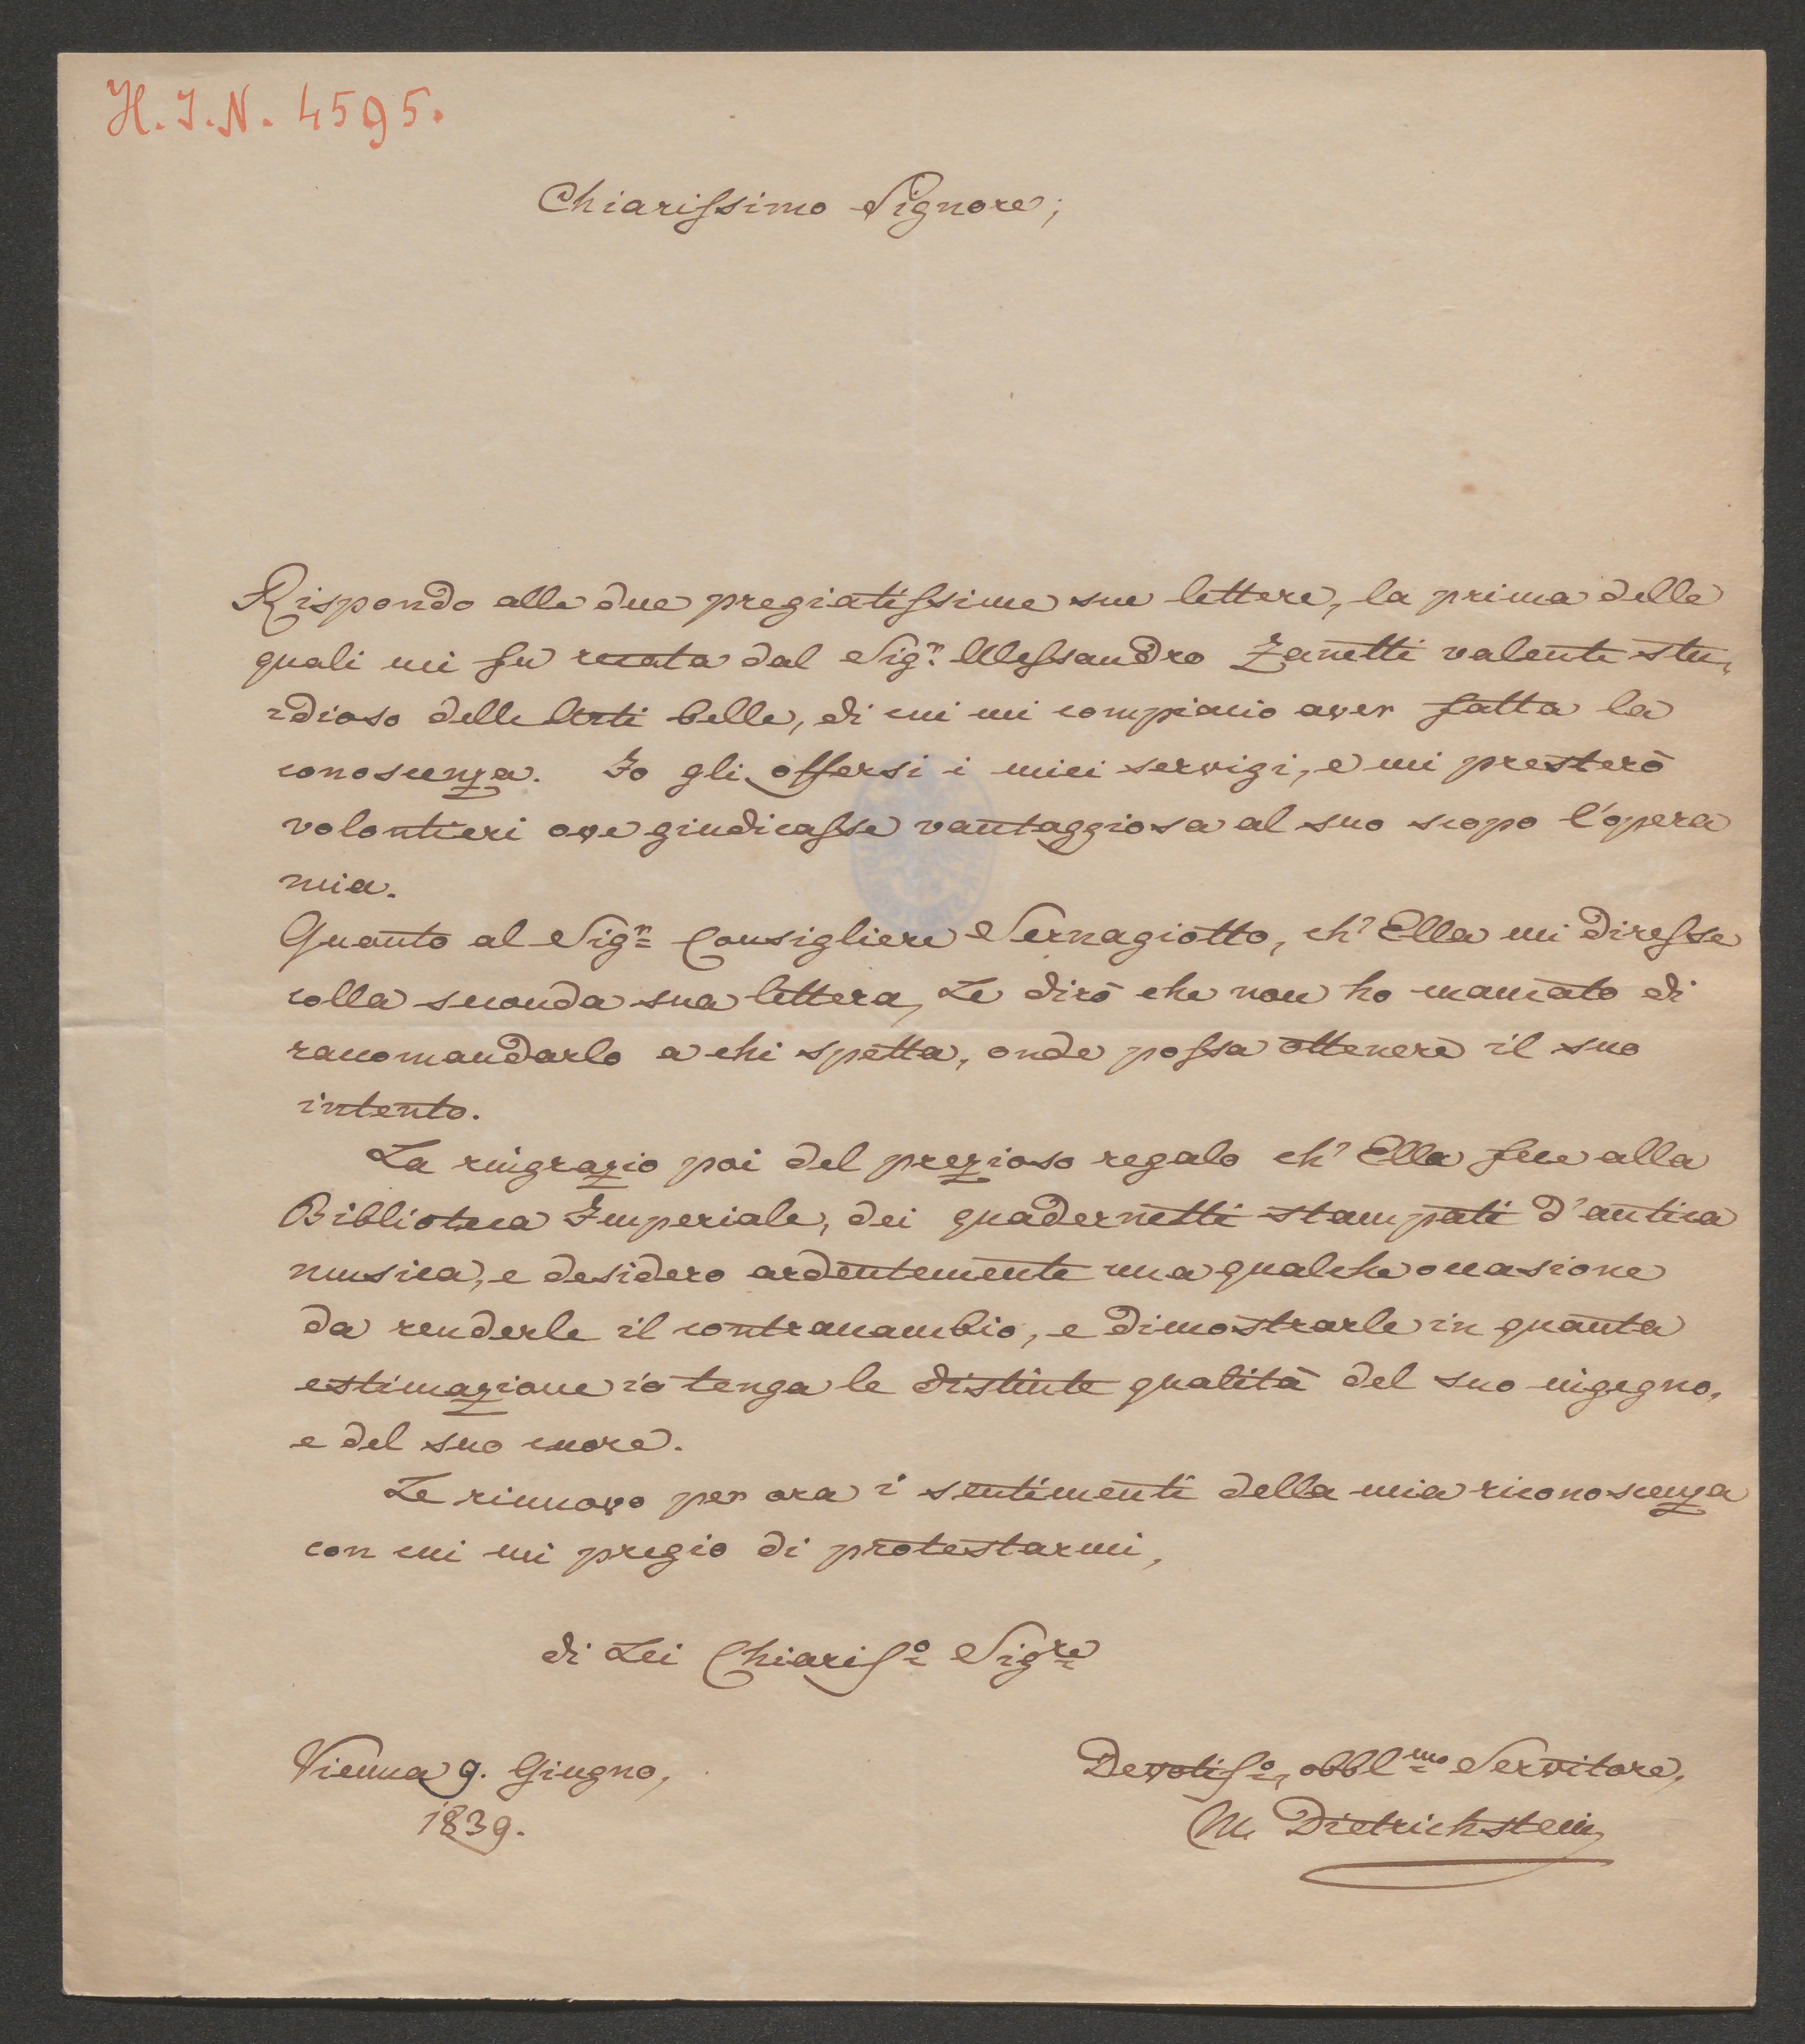 H. I. N. 4595.
Chiarissimo Signore;
Rispondo alle due pregiatissime sue lettere, la prima delle
quali mi fu recata dal Sigr. Alessandro Zanetti valente stu-
-dioso delle Arti belle, di cui mi compiacio aver fatta la
conoscenza. Io gli offersi i miei servigi, e mi presterò
volontieri ove giudicasse vantaggiosa al suo scopo l'opera
mia.
Quanto al Sigr. Consigliere Sernagiotto, ch' Ella mi diresse
colla seconda sua lettera, Le dirò che non ho mancato di
raccomandarlo a chi spetta, onde possa ottenere il suo
intento.
La ringrazio poi del prezioso regalo ch' Ella fece alla
Biblioteca Imperiale, dei quadernetti stampati d'antica
musica, e desidero ardentemente una qualche occasione
da renderle il contracambio, e dimostrarle in quanta
estimazione io tenga le distinte qualità del suo ingegno,
e del suo cuore.
Le rinnovo per ora i sentimenti della mia riconoscenza
con cui mi pregio di protestarmi,
di Lei Chiariso. Sigre
Vienna 9. Giugno,
1839.
Devotiso., obblmo Servitore,
M. Dietrichstein